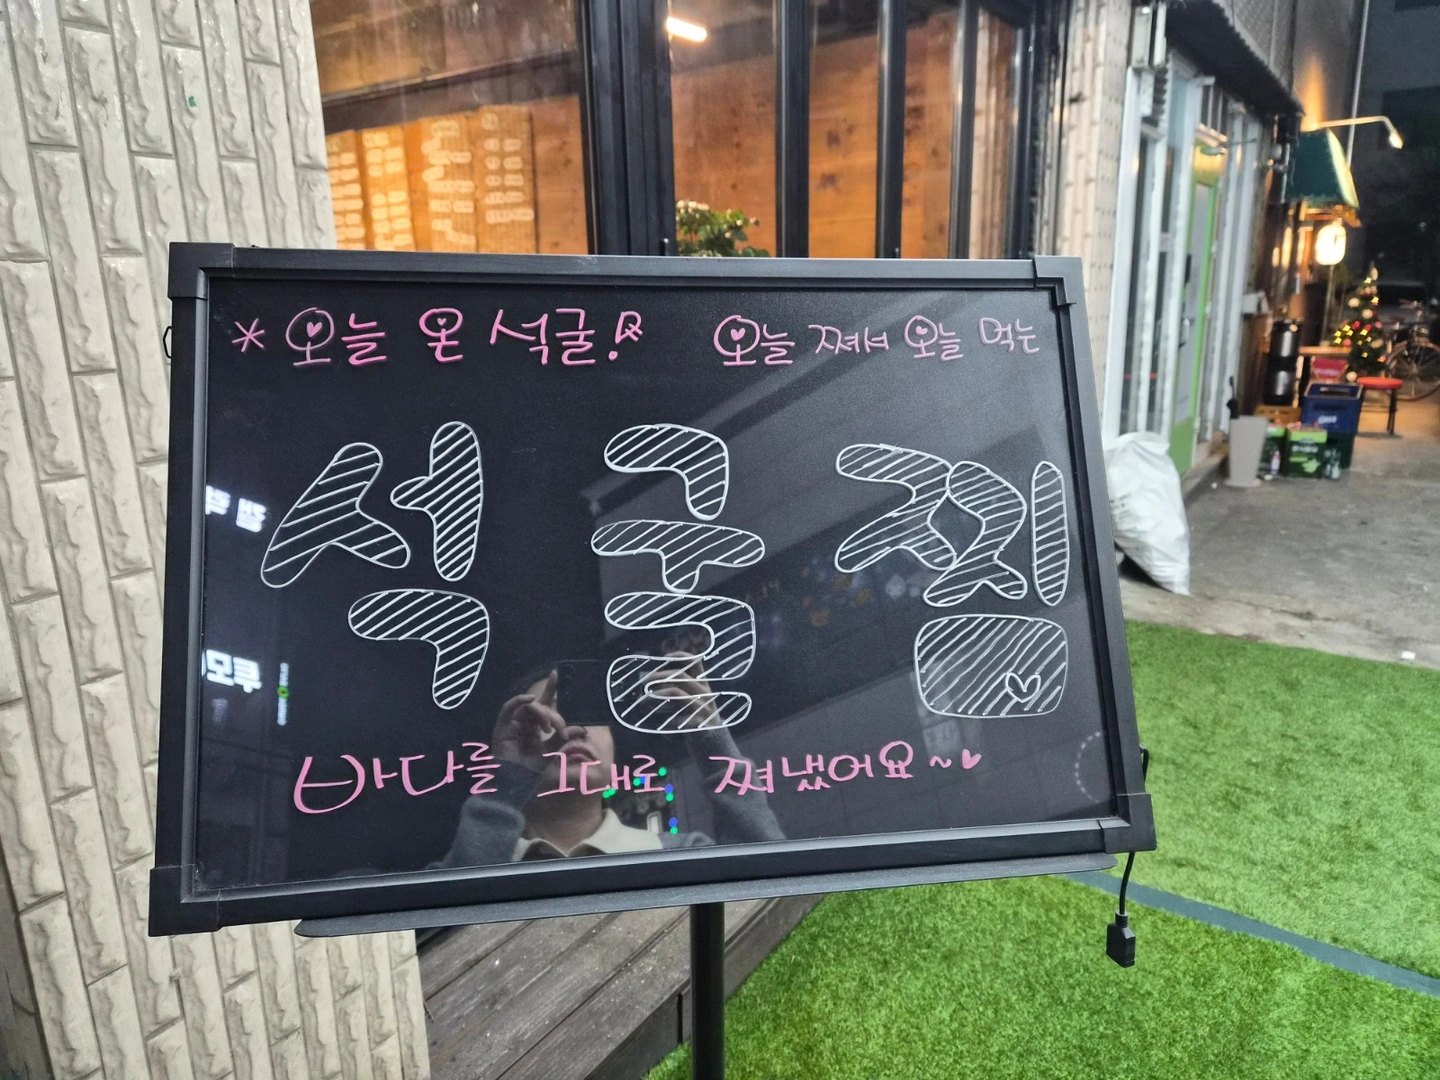 * 오늘 온 석굴! 오늘 쪄서 오늘 먹는
석굴찜
바다를 그대로 쪄냈어요~♥